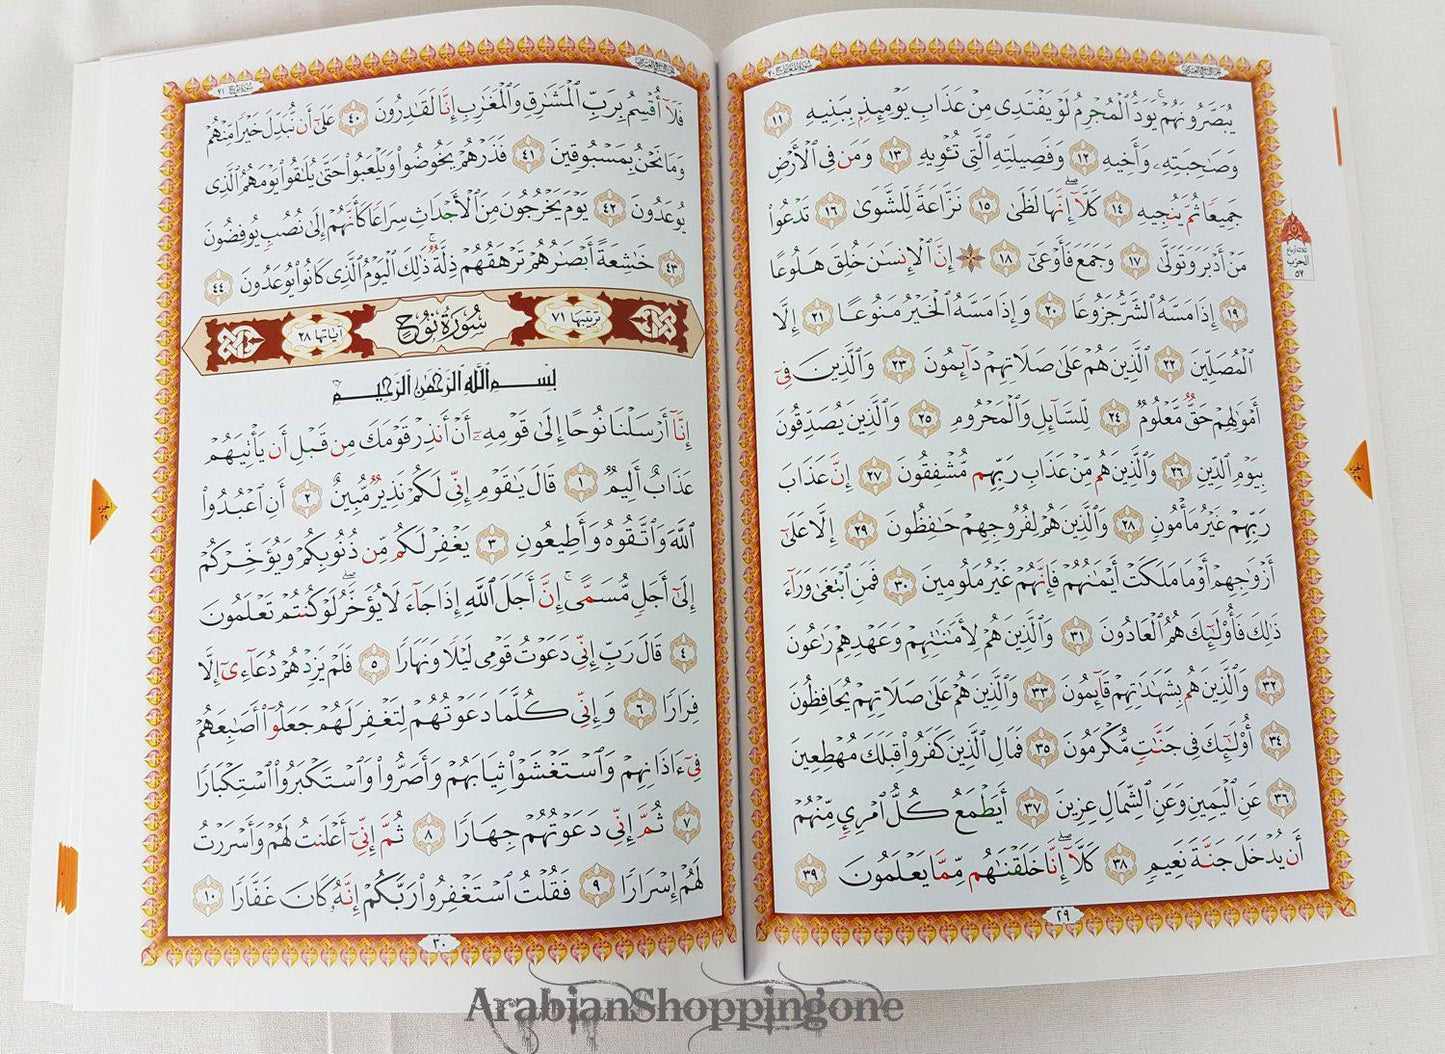 سُورَةُ المَعَارِج ٧٠
يُبَصَّرُونَهُمْ ۚ يَوَدُّ ٱلْمُجْرِمُ لَوْ يَفْتَدِى مِنْ عَذَابِ يَوْمِئِذٍۭ بِبَنِيهِ ١١
وَصَـٰحِبَتِهِۦ وَأَخِيهِ ١٢ وَفَصِيلَتِهِ ٱلَّتِى تُـْٔوِيهِ ١٣ وَمَن فِى ٱلْأَرْضِ
جَمِيعًا ثُمَّ يُنجِيهِ ١٤ كَلَّآ ۖ إِنَّهَا لَظَىٰ ١٥ نَزَّاعَةً لِّلشَّوَىٰ ١٦ تَدْعُوا۟
مَنْ أَدْبَرَ وَتَوَلَّىٰ ١٧ وَجَمَعَ فَأَوْعَىٰٓ ١٨ ۞ إِنَّ ٱلْإِنسَـٰنَ خُلِقَ هَلُوعًا
١٩ إِذَا مَسَّهُ ٱلشَّرُّ جَزُوعًا ٢٠ وَإِذَا مَسَّهُ ٱلْخَيْرُ مَنُوعًا ٢١ إِلَّا
ٱلْمُصَلِّينَ ٢٢ ٱلَّذِينَ هُمْ عَلَىٰ صَلَاتِهِمْ دَآئِمُونَ ٢٣ وَٱلَّذِينَ فِىٓ
أَمْوَٰلِهِمْ حَقٌّ مَّعْلُومٌ ٢٤ لِّلسَّآئِلِ وَٱلْمَحْرُومِ ٢٥ وَٱلَّذِينَ يُصَدِّقُونَ
بِيَوْمِ ٱلدِّينِ ٢٦ وَٱلَّذِينَ هُم مِّنْ عَذَابِ رَبِّهِم مُّشْفِقُونَ ٢٧ إِنَّ عَذَابَ
رَبِّهِمْ غَيْرُ مَأْمُونٍ ٢٨ وَٱلَّذِينَ هُمْ لِفُرُوجِهِمْ حَـٰفِظُونَ ٢٩ إِلَّا عَلَىٰٓ
أَزْوَٰجِهِمْ أَوْ مَا مَلَكَتْ أَيْمَـٰنُهُمْ فَإِنَّهُمْ غَيْرُ مَلُومِينَ ٣٠ فَمَنِ ٱبْتَغَىٰ وَرَآءَ
ذَٰلِكَ فَأُو۟لَـٰٓئِكَ هُمُ ٱلْعَادُونَ ٣١ وَٱلَّذِينَ هُمْ لِأَمَـٰنَـٰتِهِمْ وَعَهْدِهِمْ رَٰعُونَ
٣٢ وَٱلَّذِينَ هُم بِشَهَـٰدَٰتِهِمْ قَآئِمُونَ ٣٣ وَٱلَّذِينَ هُمْ عَلَىٰ صَلَاتِهِمْ يُحَافِظُونَ
٣٤ أُو۟لَـٰٓئِكَ فِى جَنَّـٰتٍ مُّكْرَمُونَ ٣٥ فَمَالِ ٱلَّذِينَ كَفَرُوا۟ قِبَلَكَ مُهْطِعِينَ
٣٦ عَنِ ٱلْيَمِينِ وَعَنِ ٱلشِّمَالِ عِزِينَ ٣٧ أَيَطْمَعُ كُلُّ ٱمْرِئٍ مِّنْهُمْ
أَن يُدْخَلَ جَنَّةَ نَعِيمٍ ٣٨ كَلَّآ ۖ إِنَّا خَلَقْنَـٰهُم مِّمَّا يَعْلَمُونَ ٣٩
٢٩
ثلاثة أرباع
الحزب
٥٧
الجزء
٢٩
سُورَةُ نُوح ٧١
فَلَآ أُقْسِمُ بِرَبِّ ٱلْمَشَـٰرِقِ وَٱلْمَغَـٰرِبِ إِنَّا لَقَـٰدِرُونَ ٤٠ عَلَىٰٓ أَن نُّبَدِّلَ خَيْرًا مِّنْهُمْ
وَمَا نَحْنُ بِمَسْبُوقِينَ ٤١ فَذَرْهُمْ يَخُوضُوا۟ وَيَلْعَبُوا۟ حَتَّىٰ يُلَـٰقُوا۟ يَوْمَهُمُ ٱلَّذِى
يُوعَدُونَ ٤٢ يَوْمَ يَخْرُجُونَ مِنَ ٱلْأَجْدَاثِ سِرَاعًا كَأَنَّهُمْ إِلَىٰ نُصُبٍ يُوفِضُونَ
٤٣ خَـٰشِعَةً أَبْصَـٰرُهُمْ تَرْهَقُهُمْ ذِلَّةٌ ۚ ذَٰلِكَ ٱلْيَوْمُ ٱلَّذِى كَانُوا۟ يُوعَدُونَ ٤٤
ترتيبها ٧١ سُورَةُ نُوحٍ آياتها ٢٨
بِسْمِ ٱللَّهِ ٱلرَّحْمَـٰنِ ٱلرَّحِيمِ
إِنَّآ أَرْسَلْنَا نُوحًا إِلَىٰ قَوْمِهِۦٓ أَنْ أَنذِرْ قَوْمَكَ مِن قَبْلِ أَن يَأْتِيَهُمْ
عَذَابٌ أَلِيمٌ ١ قَالَ يَـٰقَوْمِ إِنِّى لَكُمْ نَذِيرٌ مُّبِينٌ ٢ أَنِ ٱعْبُدُوا۟
ٱللَّهَ وَٱتَّقُوهُ وَأَطِيعُونِ ٣ يَغْفِرْ لَكُم مِّن ذُنُوبِكُمْ وَيُؤَخِّرْكُمْ
إِلَىٰٓ أَجَلٍ مُّسَمًّى ۚ إِنَّ أَجَلَ ٱللَّهِ إِذَا جَآءَ لَا يُؤَخَّرُ ۖ لَوْ كُنتُمْ تَعْلَمُونَ
٤ قَالَ رَبِّ إِنِّى دَعَوْتُ قَوْمِى لَيْلًا وَنَهَارًا ٥ فَلَمْ يَزِدْهُمْ دُعَآءِىٓ إِلَّا
فِرَارًا ٦ وَإِنِّى كُلَّمَا دَعَوْتُهُمْ لِتَغْفِرَ لَهُمْ جَعَلُوٓا۟ أَصَـٰبِعَهُمْ
فِىٓ ءَاذَانِهِمْ وَٱسْتَغْشَوْا۟ ثِيَابَهُمْ وَأَصَرُّوا۟ وَٱسْتَكْبَرُوا۟ ٱسْتِكْبَارًا
٧ ثُمَّ إِنِّى دَعَوْتُهُمْ جِهَارًا ٨ ثُمَّ إِنِّىٓ أَعْلَنتُ لَهُمْ وَأَسْرَرْتُ
لَهُمْ إِسْرَارًا ٩ فَقُلْتُ ٱسْتَغْفِرُوا۟ رَبَّكُمْ إِنَّهُۥ كَانَ غَفَّارًا ١٠
٣٠
الجزء
٢٩
ArabianShoppingone